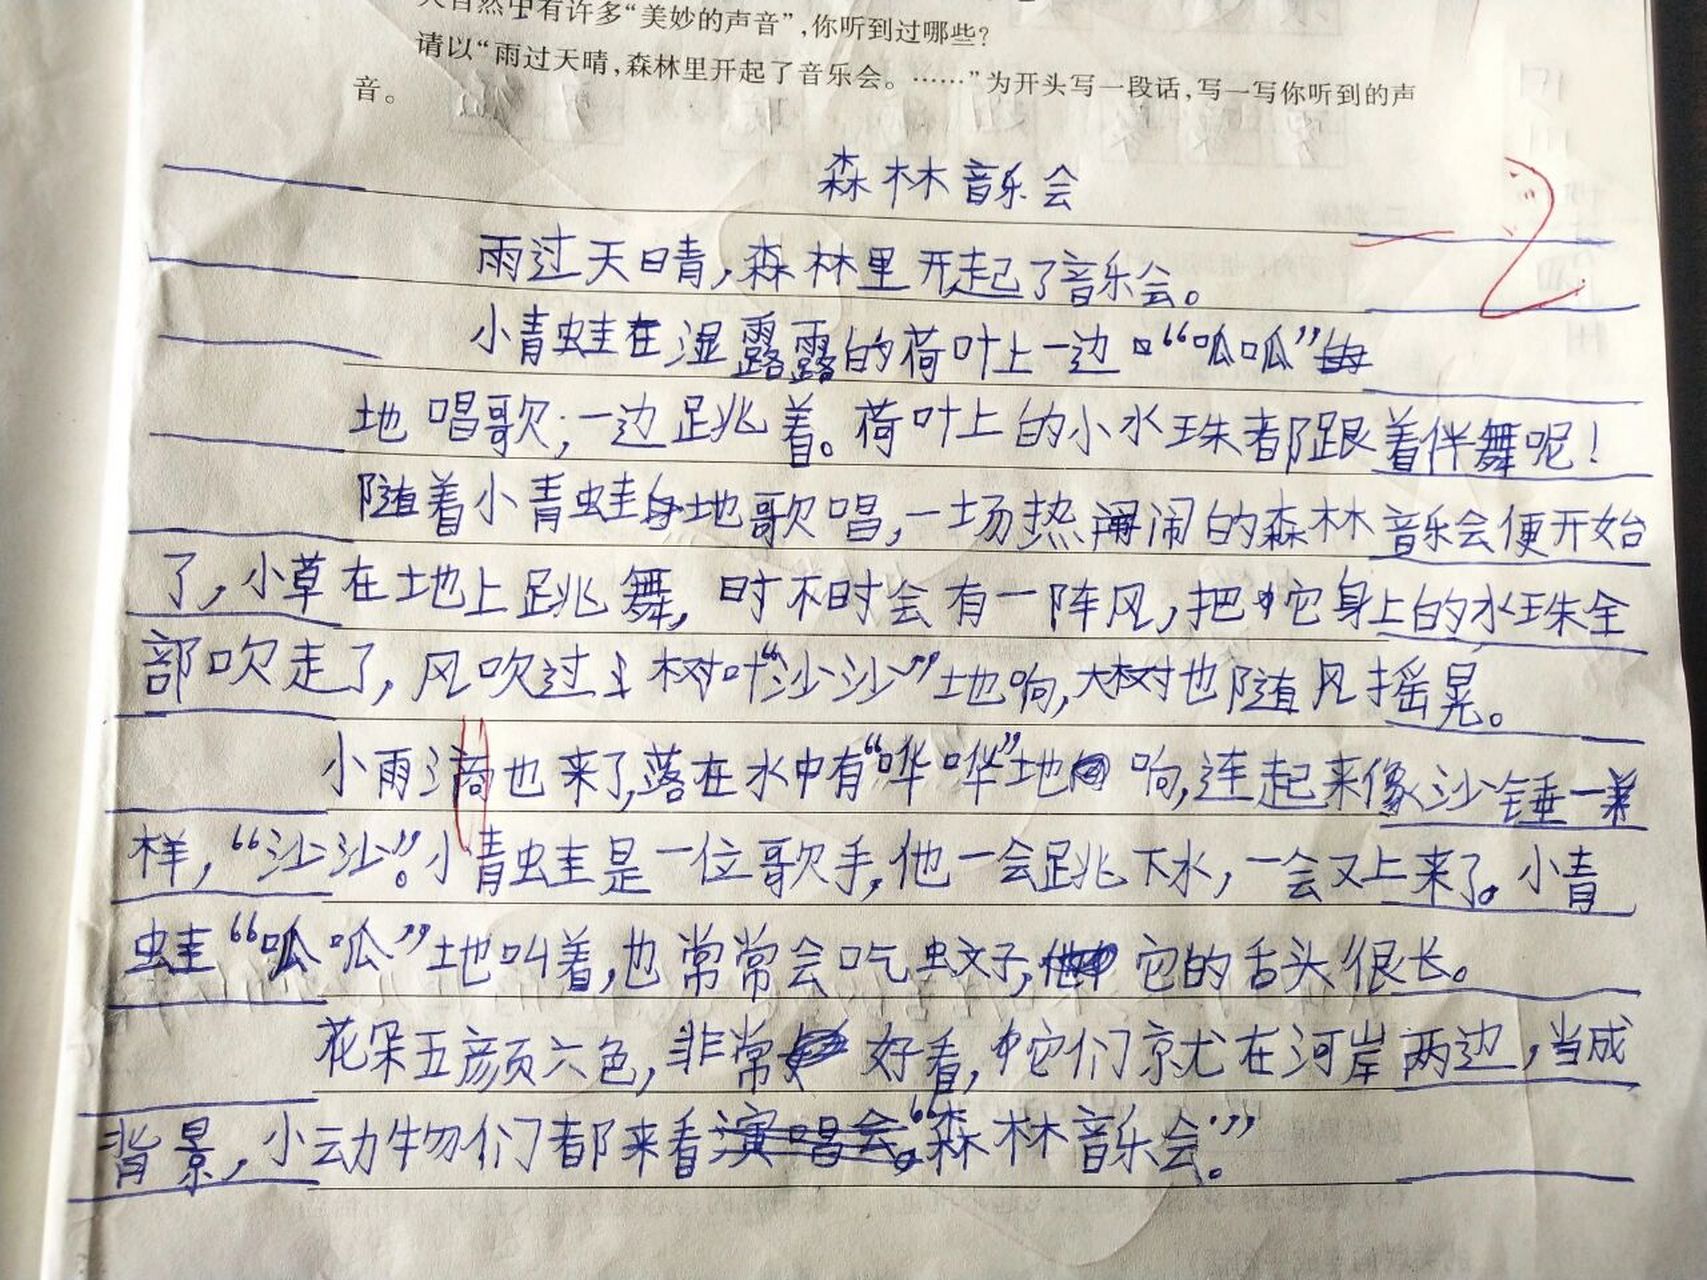 大自然中有许多“美妙的声音”,你听到过哪些?
请以“雨过天晴,森林里开起了音乐会。……”为开头写一段话,写一写你听到的声
音。
森林音乐会
雨过天晴,森林里开起了音乐会。
小青蛙在湿露露的荷叶上一边“呱呱”
地唱歌;一边跳着。荷叶上的小水珠都跟着伴舞呢!
随着小青蛙地歌唱,一场热闹的森林音乐会便开始
了,小草在地上跳舞,时不时会有一阵风,把它身上的水珠全
部吹走了,风吹过树叶“沙沙”地响,大树也随风摇晃。
小雨滴也来了,落在水中有“哗哗”地响,连起来像沙锤一
样,“沙沙”。小青蛙是一位歌手,他一会跳下水,一会又上来了。小青
蛙“呱呱”地叫着,也常常会吃蚊子,它的舌头很长。
花朵五颜六色,非常好看,它们就在河岸两边,当成
背景,小动物们都来看“森林音乐会。”